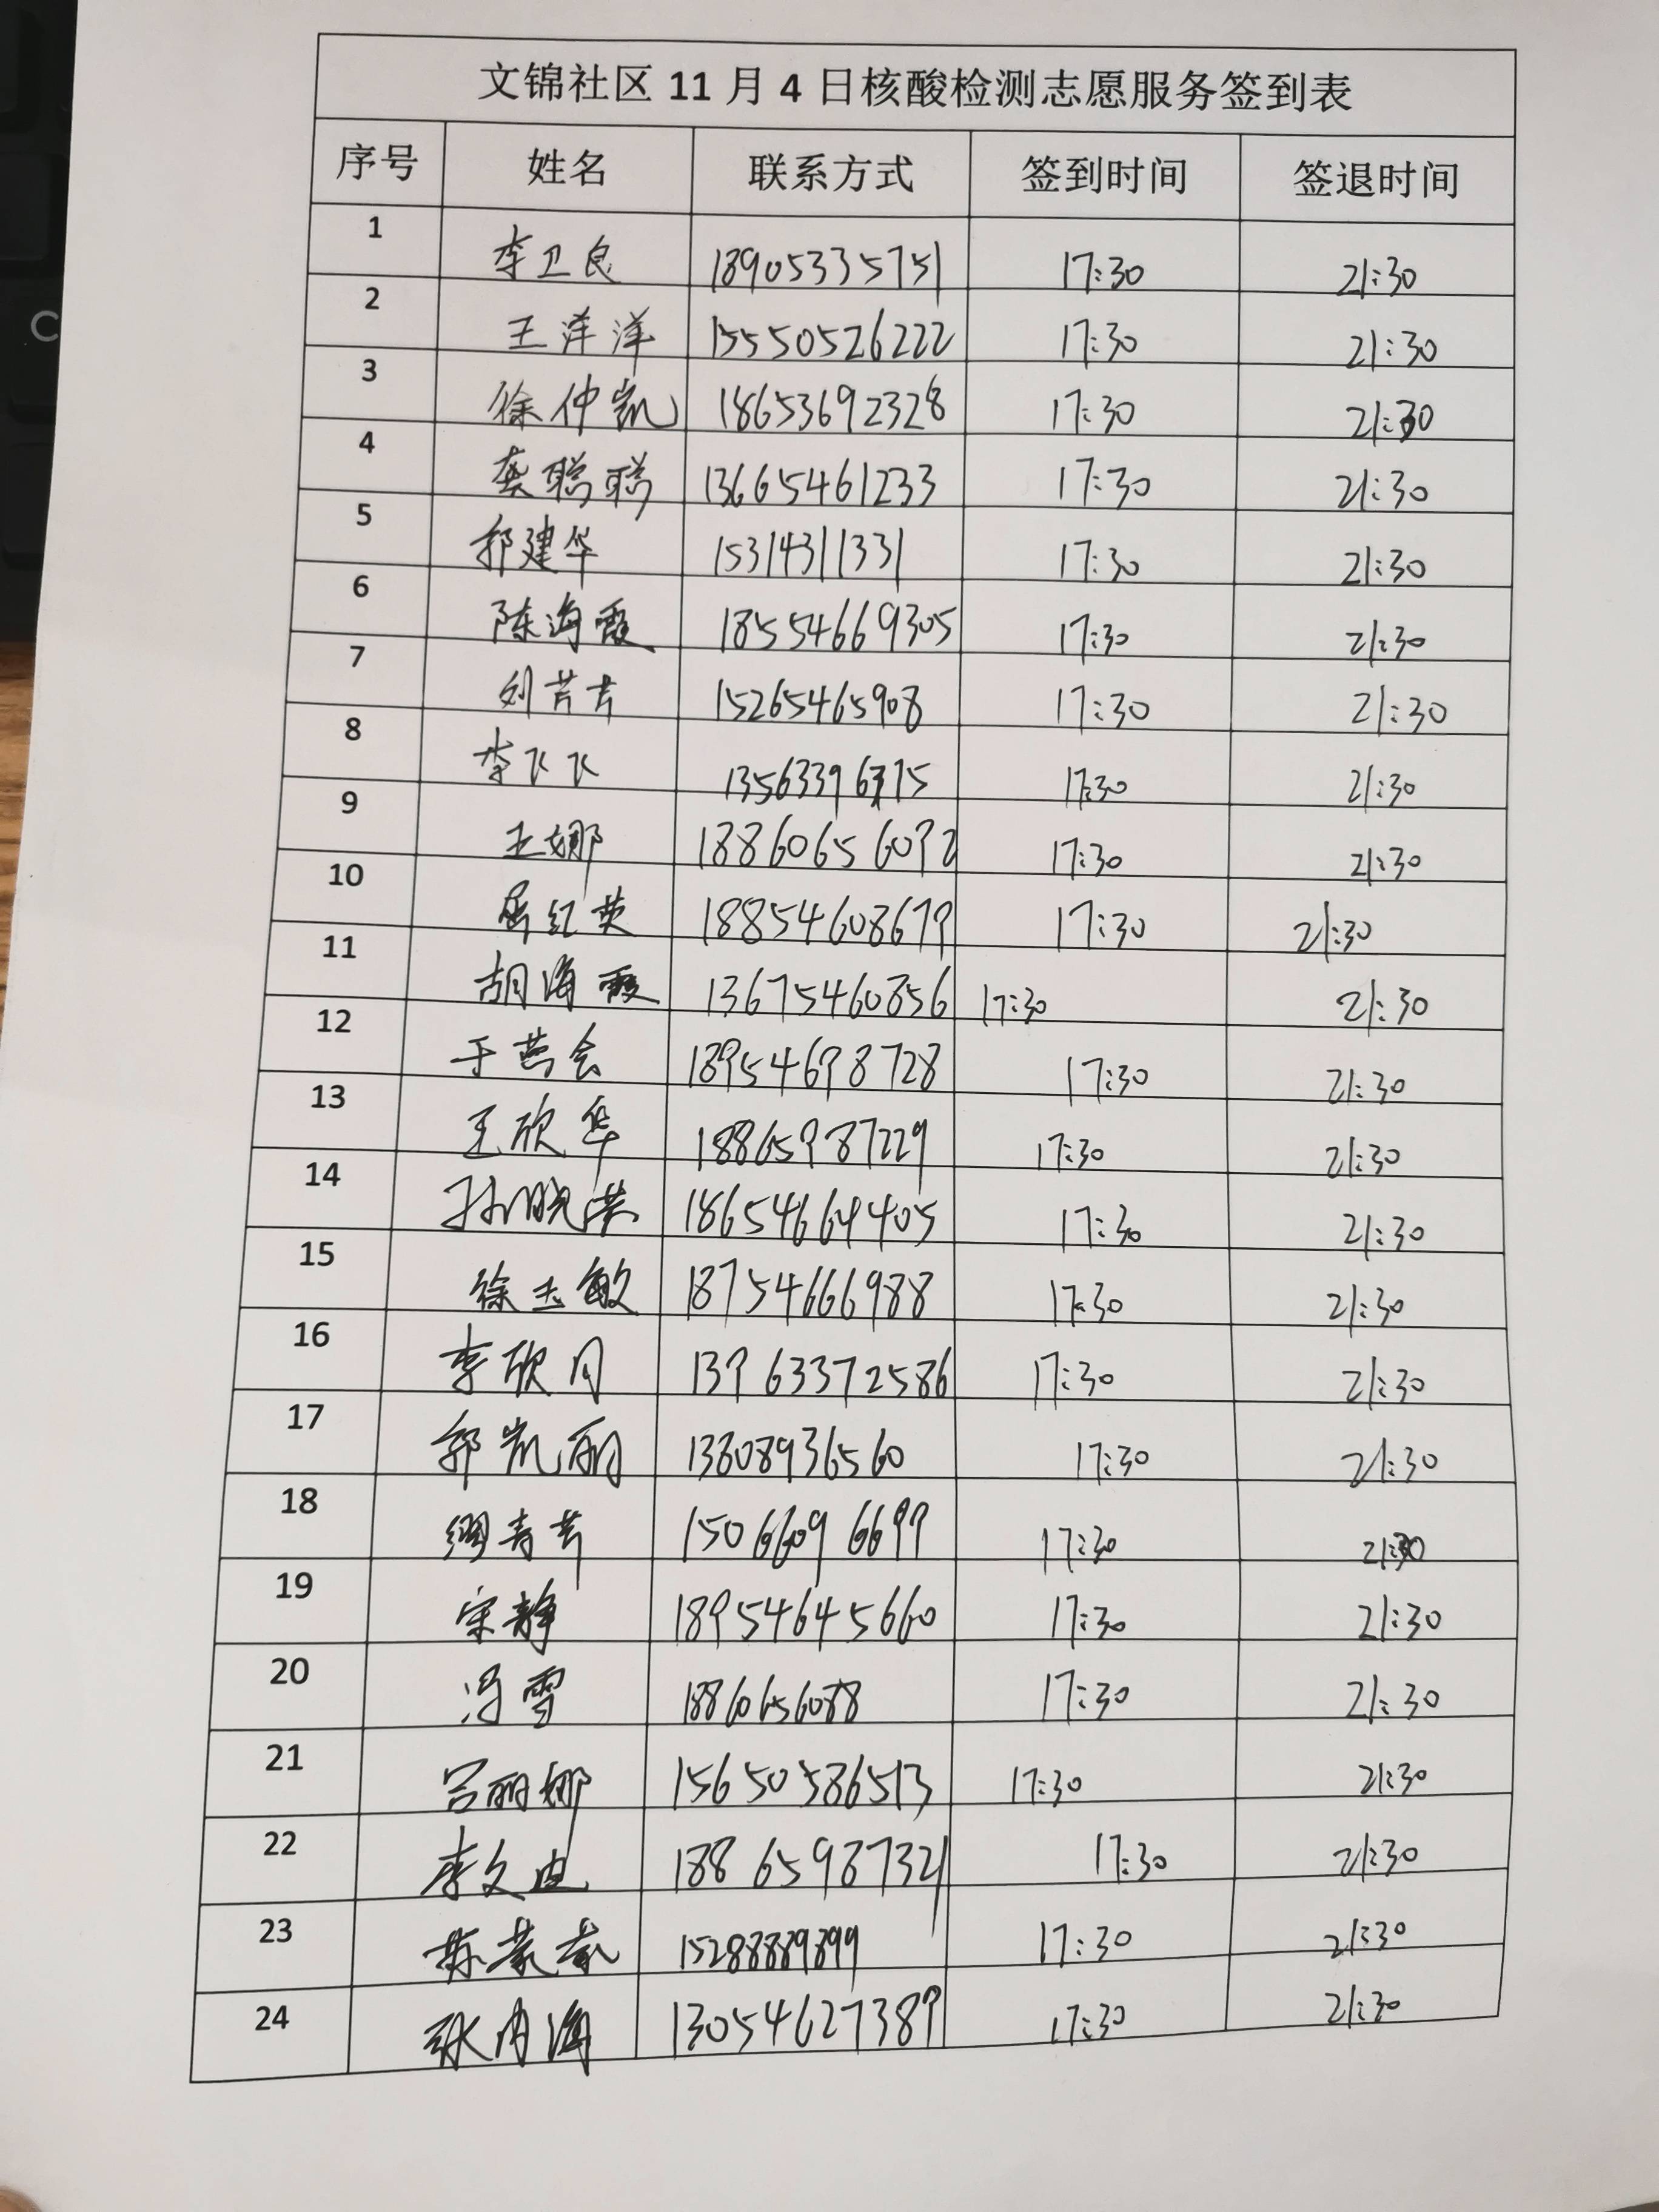 文锦社区 11 月 4 日核酸检测志愿服务签到表
序号 姓名 联系方式 签到时间 签退时间
1 李卫良 18905335751 17:30 21:30
2 王洋洋 15550526222 17:30 21:30
3 徐仲凯 18653692328 17:30 21:30
4 龚聪聪 13665461233 17:30 21:30
5 郭建华 15314311331 17:30 21:30
6 陈海霞 18554669305 17:30 21:30
7 刘芹芹 15265465908 17:30 21:30
8 李飞飞 17:30 21:30
9 王娜 18860656092 17:30 21:30
10 屈红英 18854608679 17:30 21:30
11 胡海霞 13675460856 17:30 21:30
12 于燕会 18954698728 17:30 21:30
13 王欣华 18865987229 17:30 21:30
14 孙晓洪 18654664405 17:30 21:30
15 徐玉敏 18754666988 17:30 21:30
16 李欣月 13963372586 17:30 21:30
17 郭凯丽 13808936560 17:30 21:30
18 青芹 15066096699 17:30 21:30
19 宋静 18954645660 17:30 21:30
20 冯雪 18860656088 17:30 21:30
21 吕丽娜 15650586513 17:30 21:30
22 李文迪 18865987321 17:30 21:30
23 苏蒙蒙 15288889899 17:30 21:30
24 张内海 13054627389 17:30 21:30
C